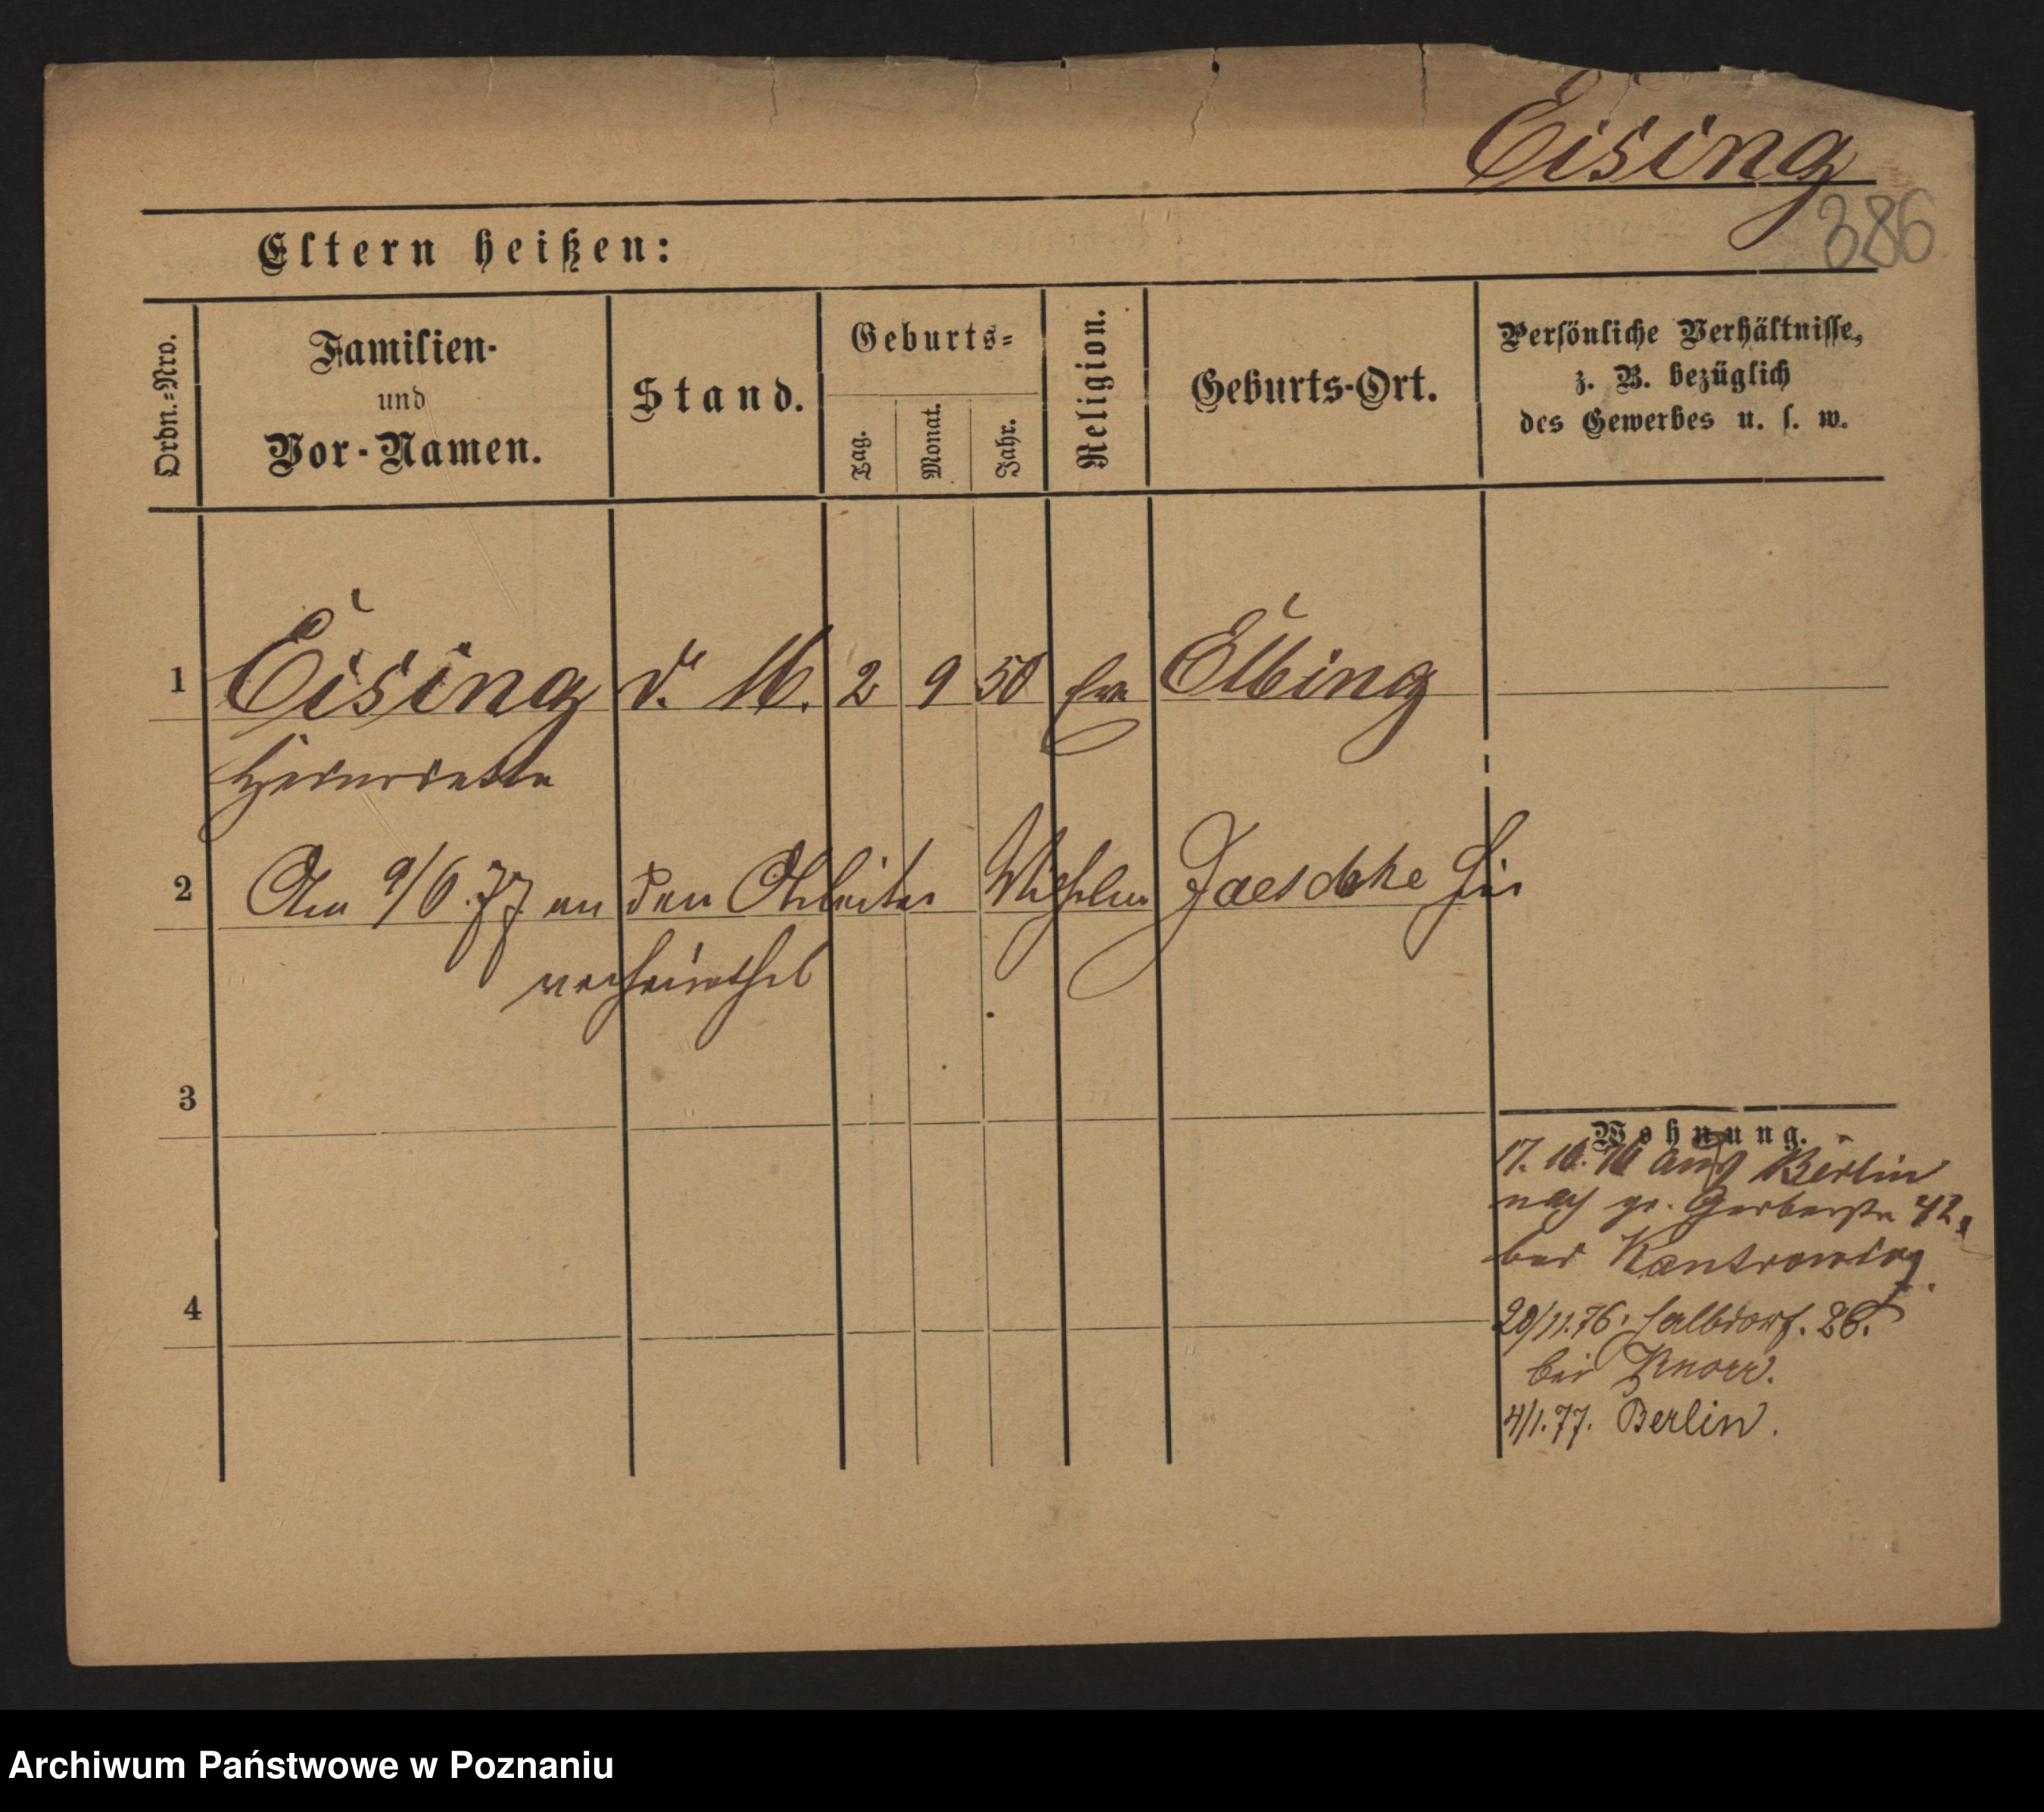 Eising
386
Eltern heißen:
Ordn.=Nro.
Familien-
und
Vor-Namen.
Stand.
Geburts=
Tag.
Monat.
Jahr.
Religion.
Geburts-Ort.
Persönliche Verhältnisse,
z. B. bezüglich
des Gewerbes u. s. w.
1 Eising d. M. 2 9 50 Elbing
Henriette
2 Am 9/6.77 an den Arbeiter Wilhelm Jaeschke hier
verheirathet
3
Wohnung.
17. 10. 76 aus Berlin
nach gr. Gerberstr 42.
bei Kantrowicz
4
20/11.76. Halbdorf. 26.
bei Knorr.
4/1.77. Berlin.
Archiwum Państwowe w Poznaniu